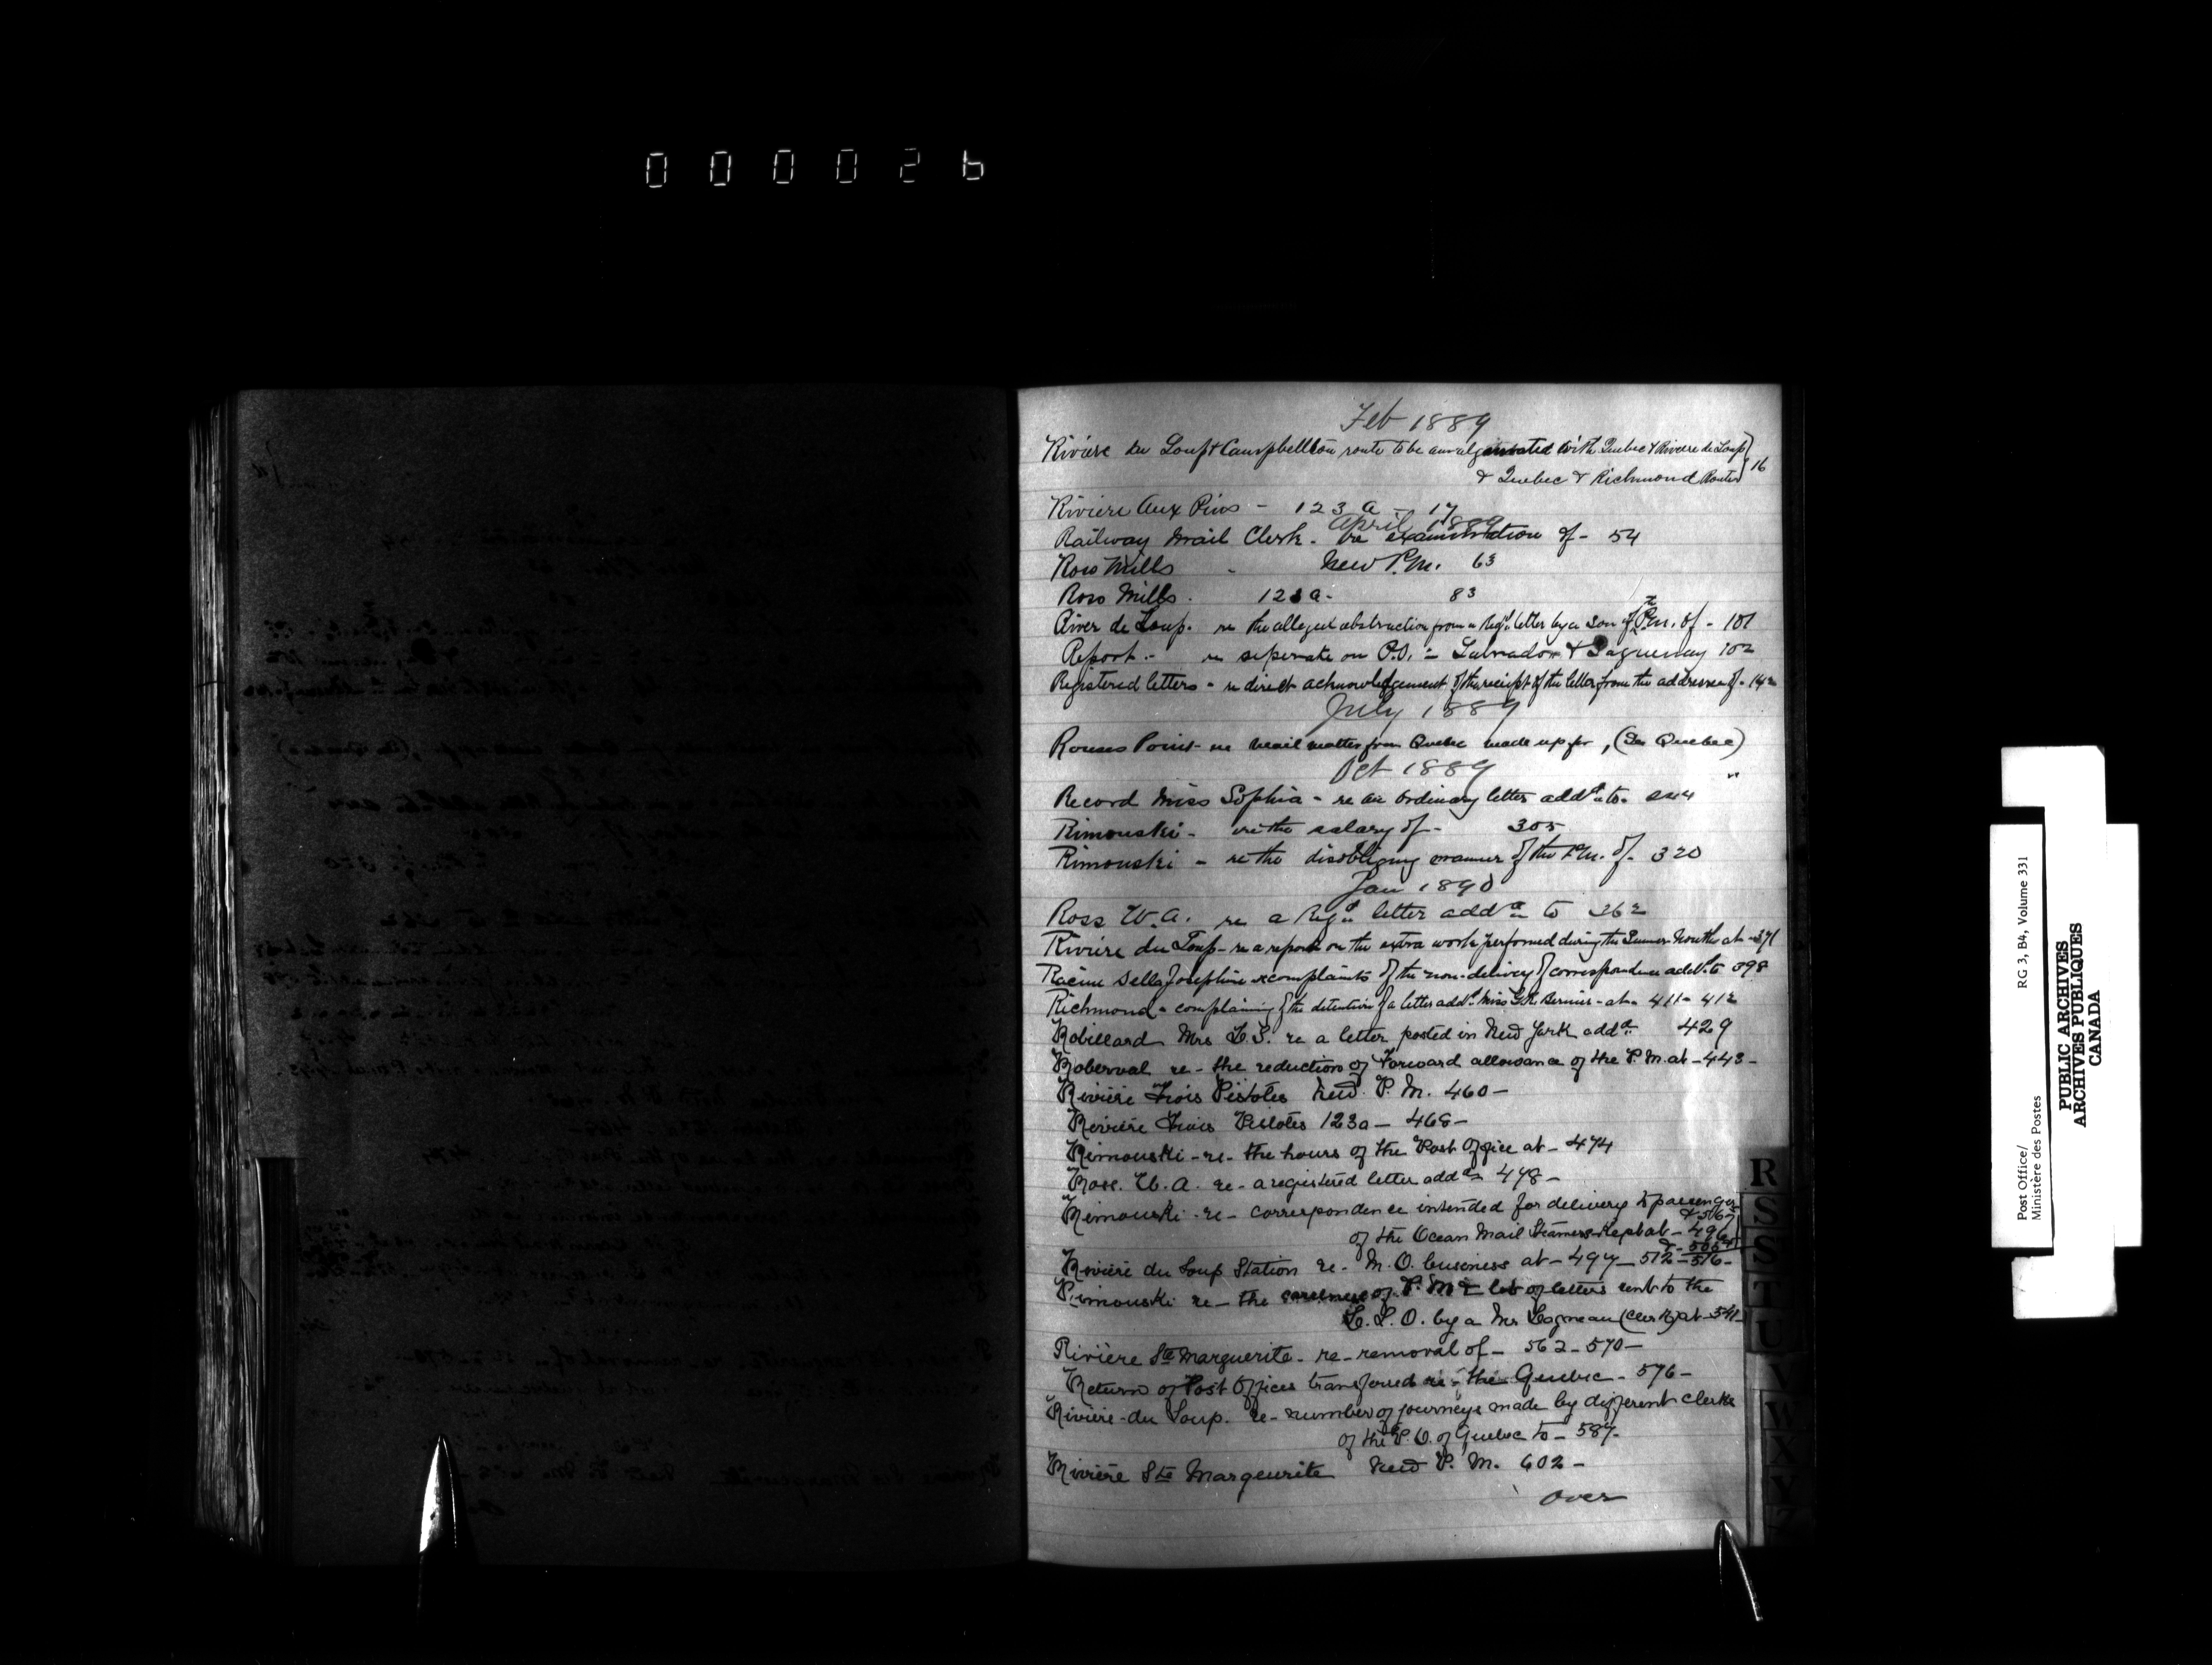 000026
Feb 1889
Rivière du Loup & Campbellton route to be amalgamated with Quebec & Riviere du Loup
& Quebec & Richmond Routes 16
Riviere Aux Pins - 123 a - 17
April 1889
Railway Mail Clerk - re examination of - 54
Ross Mills - New P.M. 63
Ross Mills. 123 a - 83
River de Loup. re the alleged abstraction from a Regd letter by a son of the P.M. of - 101
Report - re seperate on P.O. - Labrador & Saguenay 102
Registered letters - re direct acknowledgement of the receipt of the letter from the addressee of - 142
July 1889
Rouses Point - re mail matter from Quebec made up for, (See Quebec)
Oct 1889
Record Miss Sophia - re an ordinary letter addd to - 244
Rimouski - re the salary of - 305
Rimouski - re the disobliging manner of the P.M. of - 320
Jan 1890
Ross W.A. re a Regd letter addd to 362
Rivière du Loup - re a report on the extra work performed during the Summer Months at - 371
Racine Josephine complaints of the non-delivery of correspondence addd to 398
Richmond - complaining of the detention of a letter addd Miss Bernier - at - 411 - 412
Robillard Mrs L.S. re a letter posted in New York addd 429
Roberval re - the reduction of Forward allowance of the P.M. at - 443 -
Rivière Trois Pistoles New P.M. 460 -
Rivière Trois Pistoles 123a - 468 -
Rimouski - re - the hours of the Post Office at - 474
Ross. W.A. re - a registered letter addd 478 -
Rimouski - re - correspondence intended for delivery to passengers
& 567
of the Ocean Mail Steamers Kept at - 496
& - 505
Rivière du Loup Station re - M.O. business at - 497 - 512 - 516 -
Rimouski re - the of P.M. & lot of letters sent to the
D.L.O. by a Mr Gagneau (clerk) at - 541
Rivière Ste Marguerite - re - removal of - 562 - 570 -
Return of Post Offices transferred re - the Quebec - 576 -
Rivière - du Loup. re - number of journeys made by different clerks
of the P.O. of Quebec to - 587 -
Rivière Ste Margeurite New P.M. 602 -
over
R
S
S
T
U
V
W
X
Y
Z
Post Office/ RG 3, B4, Volume 331
Ministère des Postes
PUBLIC ARCHIVES
ARCHIVES PUBLIQUES
CANADA